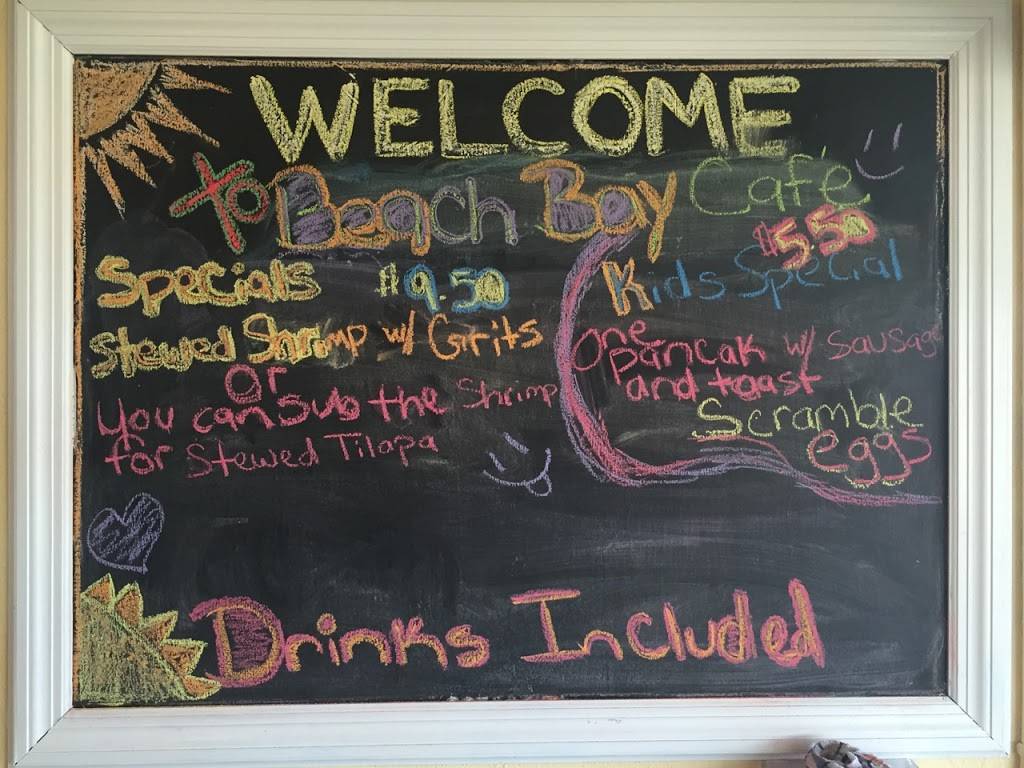 WELCOME
to Beach Bay Café
Specials $9.50
Stewed Shrimp w/ Grits
or
You can sub the Shrimp
for Stewed Tilapa
$5.50
Kids Special
One pancak w/ Sausage
and toast
Scramble
eggs
Drinks Included